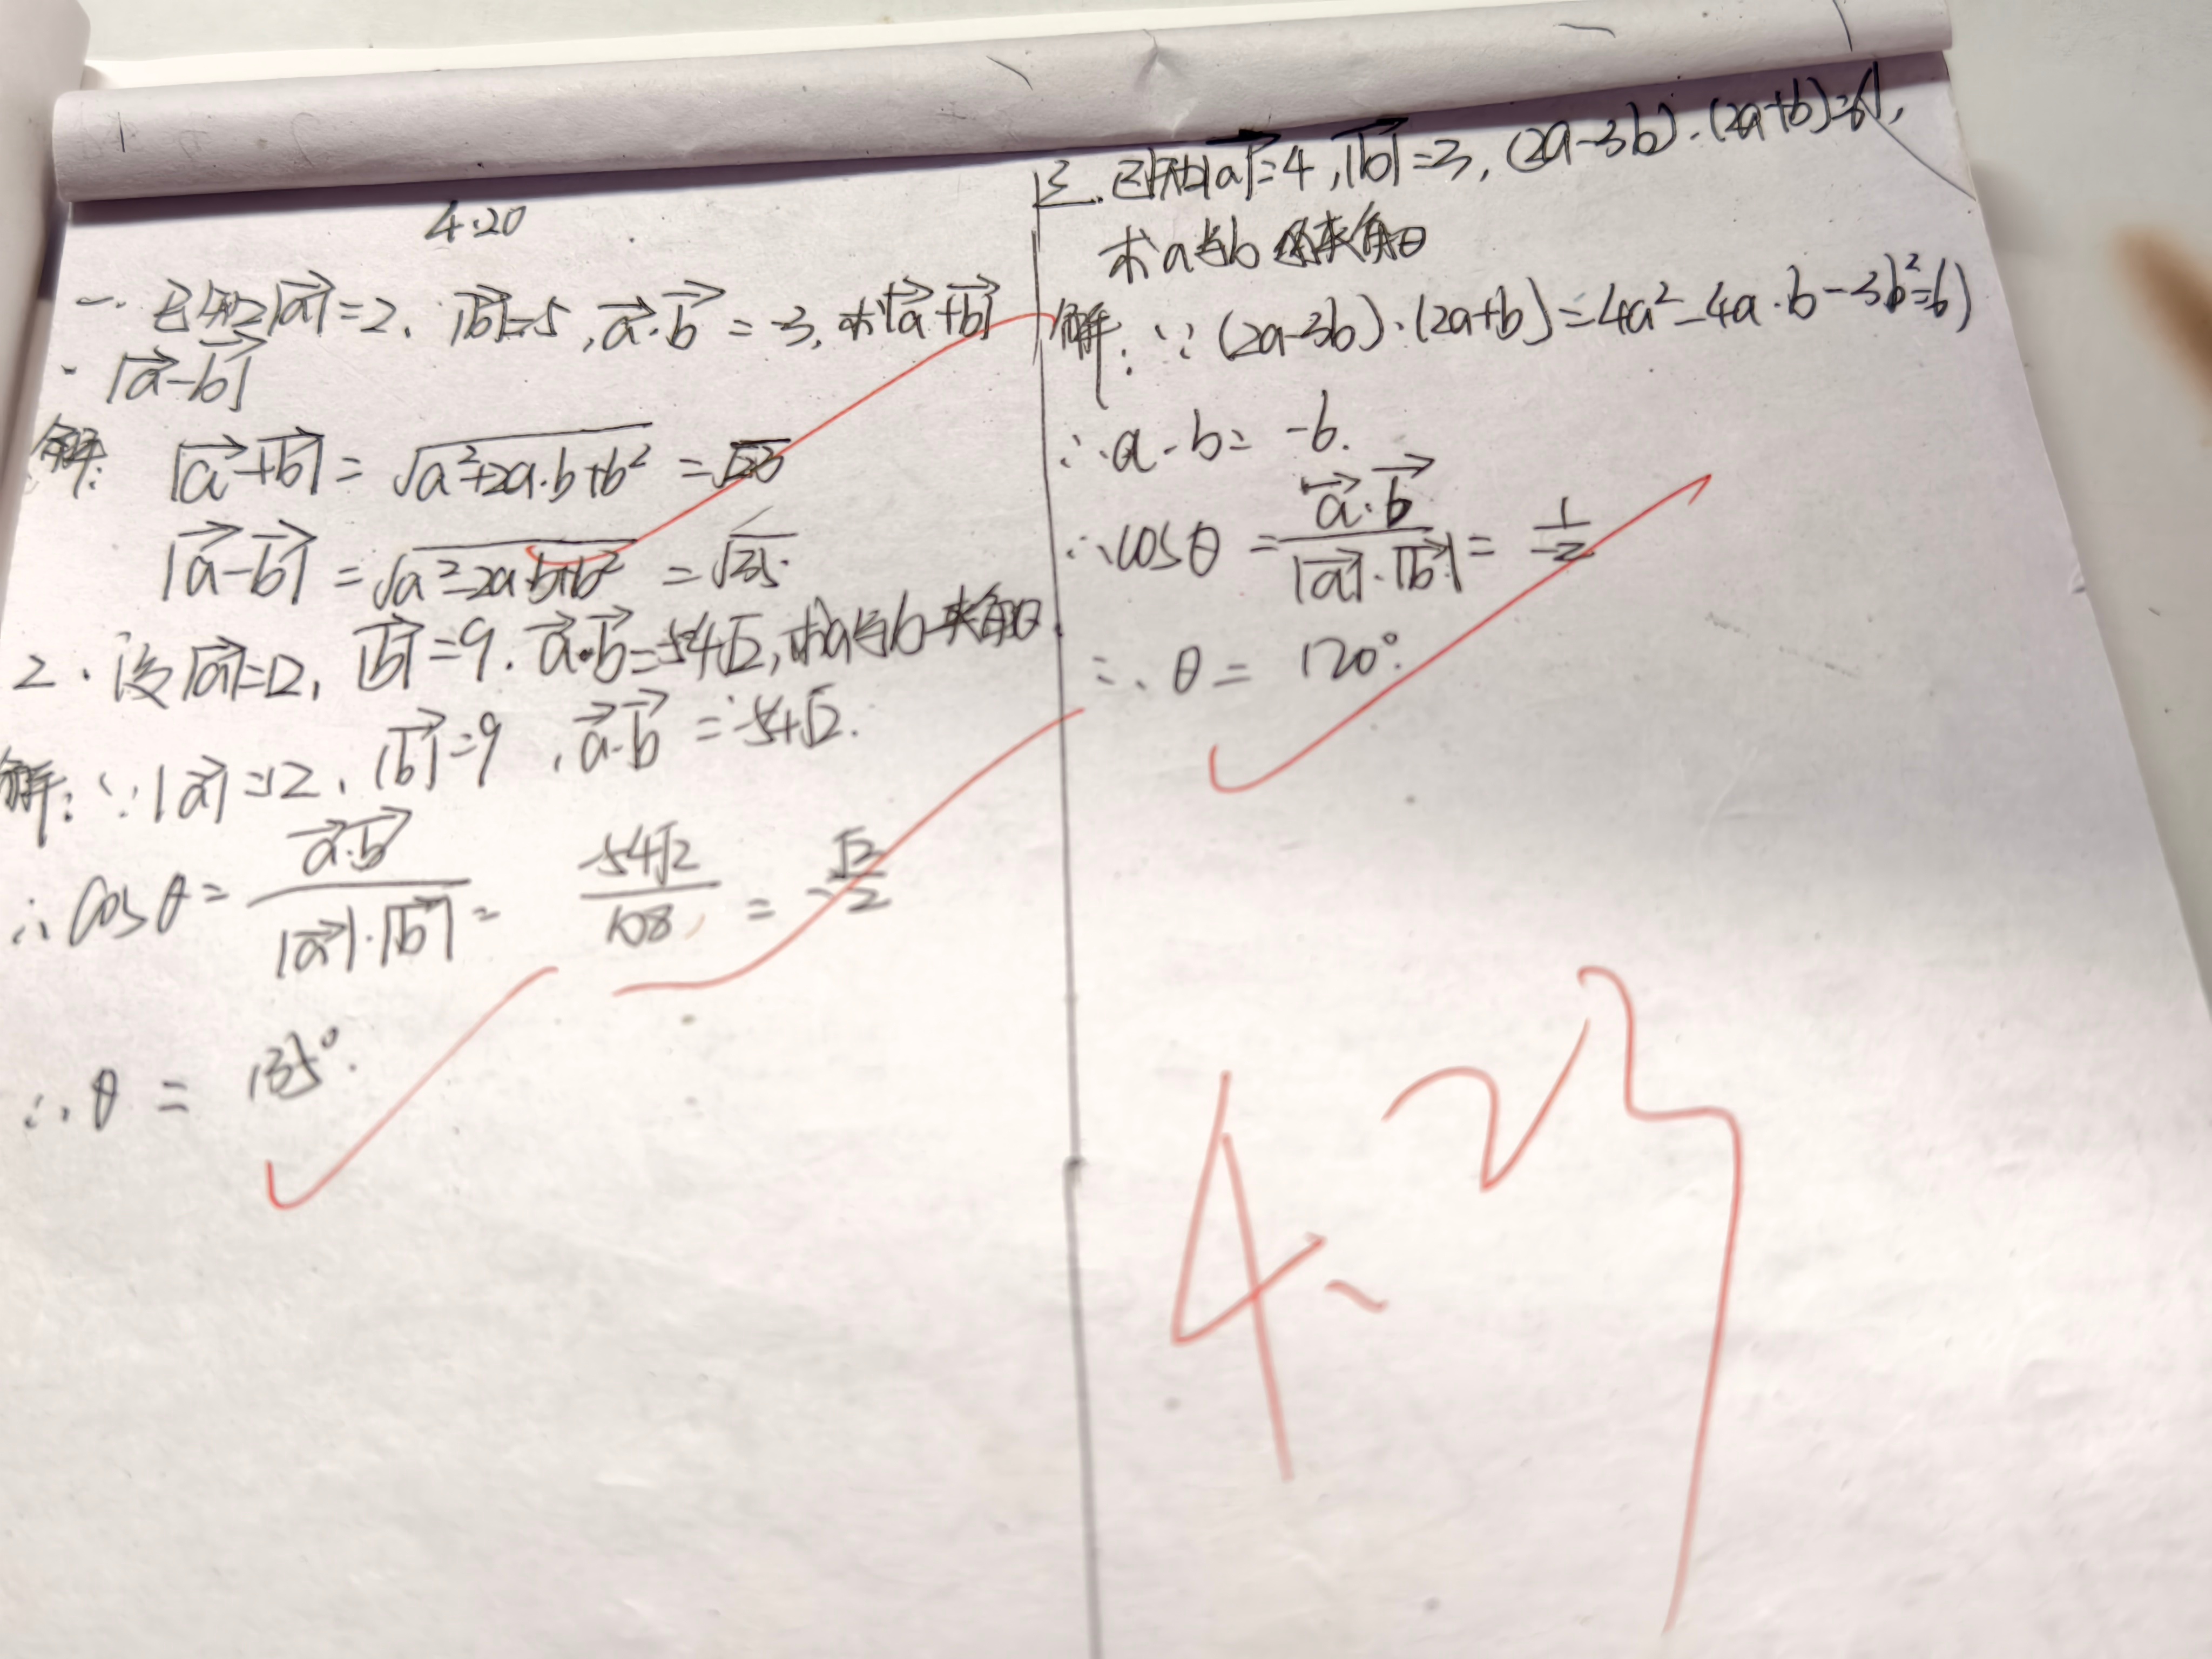 4.20
一. 已知|a⃗|=2, |b⃗|=5, a⃗·b⃗=-3, 求|a⃗+b⃗|
· |a⃗-b⃗|
解: |a⃗+b⃗| = √(a²+2a·b+b²) = √23
|a⃗-b⃗| = √(a²-2a·b+b²) = √35.
2. 设|a⃗|=12, |b⃗|=9. a⃗·b⃗=-54√2, 求a与b夹角θ
解: ∵|a⃗|=12, |b⃗|=9, a⃗·b⃗=-54√2.
∴cosθ = a⃗·b⃗/(|a⃗|·|b⃗|) = -54√2/108 = -√2/2
∴θ = 135°.
三. 已知|a⃗|=4, |b⃗|=3, (2a-3b)·(2a+b)=61,
求a与b的夹角θ
解: ∵(2a-3b)·(2a+b)=4a²-4a·b-3b²=61
∴a·b= -6.
∴cosθ = a⃗·b⃗/(|a⃗|·|b⃗|) = 1/-2
∴θ = 120°.
4.23